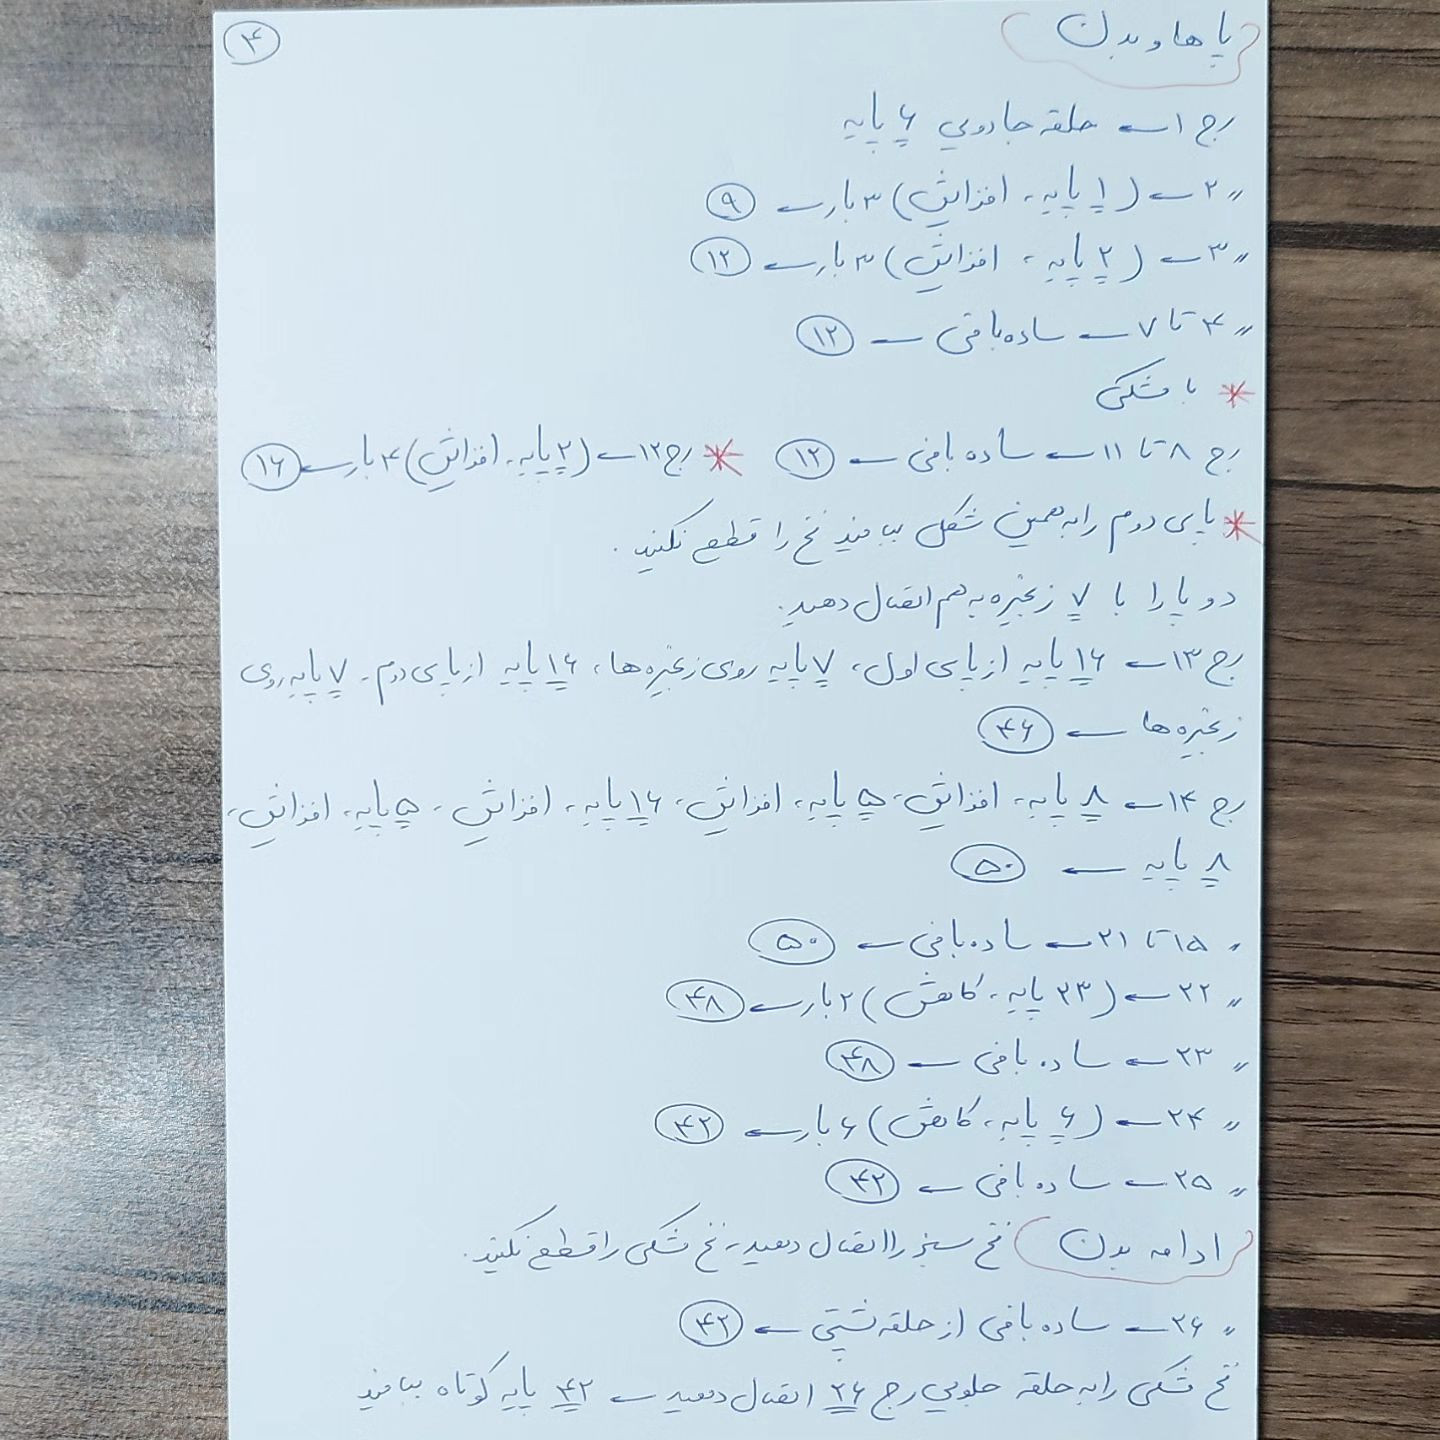 پا ها و بدن
۴
رج ۱← حلقه جادویی ۶ پایه
〃 ۲← (۱ پایه، افزایش) ۳ بار← ۹
〃 ۳← (۲ پایه، افزایش) ۳ بار← ۱۲
〃 ۴ تا ۷← ساده بافی ← ۱۲
* با مشکی
رج ۸ تا ۱۱← ساده بافی ← ۱۲ * رج ۱۲← (۲ پایه، افزایش) ۴ بار← ۱۶
* پای دوم را به همین شکل ببافید نخ را قطع نکنید.
دو پا را با ۷ زنجیره به هم اتصال دهید.
رج ۱۳← ۱۶ پایه از پای اول، ۷ پایه روی زنجیره ها، ۱۶ پایه از پای دوم، ۷ پایه روی
زنجیره ها ← ۴۶
رج ۱۴← ۸ پایه، افزایش، ۵ پایه، افزایش، ۱۶ پایه، افزایش، ۵ پایه، افزایش،
۸ پایه ← ۵۰
〃 ۱۵ تا ۲۱← ساده بافی ← ۵۰
〃 ۲۲← (۲۳ پایه، کاهش) ۲ بار← ۴۸
〃 ۲۳← ساده بافی ← ۴۸
〃 ۲۴← (۶ پایه، کاهش) ۶ بار← ۴۲
〃 ۲۵← ساده بافی ← ۴۲
ادامه بدن نخ سبز را اتصال دهید، نخ مشکی را قطع نکنید.
〃 ۲۶← ساده بافی از حلقه پشتی ← ۴۲
نخ مشکی را به حلقه جلویی رج ۲۶ اتصال دهید ← ۴۲ پایه کوتاه ببافید